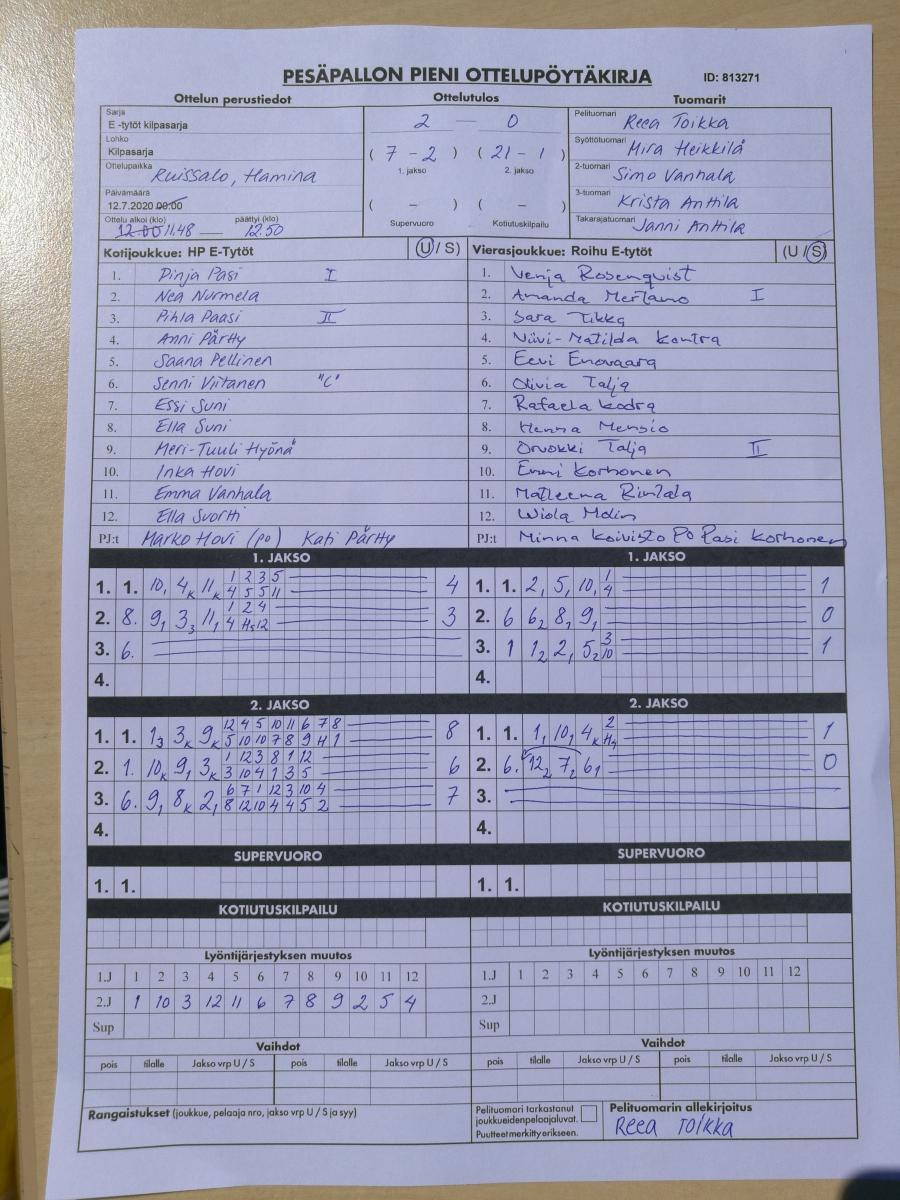 PESÄPALLON PIENI OTTELUPÖYTÄKIRJA ID: 813271
Ottelun perustiedot Ottelutulos Tuomarit
Sarja
E -tytöt kilpasarja
Lohko
Kilpasarja
Ottelupaikka
Ruissalo, Hamina
Päivämäärä
12.7.2020 00:00
Ottelu alkoi (klo) päättyi (klo)
12:00 11.48 — 12.50
2 — 0
( 7 - 2 ) ( 21 - 1 )
1. jakso 2. jakso
( - ) ( - )
Supervuoro Kotiutuskilpailu
Pelituomari Reea Toikka
Syöttötuomari Mira Heikkilä
2-tuomari Simo Vanhala
3-tuomari Krista Anttila
Takarajatuomari Janni Anttila
Kotijoukkue: HP E-Tytöt (U / S) Vierasjoukkue: Roihu E-tytöt (U / S)
1. Pinja Pasi I
2. Nea Nurmela
3. Pihla Paasi II
4. Anni Pärtty
5. Saana Pellinen
6. Senni Viitanen "C"
7. Essi Suni
8. Ella Suni
9. Meri-Tuuli Hyönä
10. Inka Hovi
11. Emma Vanhala
12. Ella Suortti
PJ:t Marko Hovi (po) Kati Pärtty
1. Venja Rosenqvist
2. Amanda I
3. Sara Tikka
4. Niivi-Matilda Kontra
5. Eevi Enovaara
6. Olivia Talja
7. Rafaela Kodra
8. Henna Mensio
9. Orvokki Talja II
10. Emmi Korhonen
11. Matleena Rintala
12. Wiola Molin
PJ:t Minna Koivisto PO Pasi Korhonen
1. JAKSO 1. JAKSO
1. 1. 10, 4K 11K 1 2 3 5 4
4 5 5 11
2. 8. 9, 3₃ 11, 1 2 4 3
4 H₅ 12
3. 6.
4.
1. 1. 2, 5, 10, 1 1
4
2. 6 6₂ 8, 9, 0
3. 1 1₂ 2, 5₂ 3 1
10
4.
2. JAKSO 2. JAKSO
1. 1. 1₃ 3K 9K 12 4 5 10 11 6 7 8 8
5 10 10 7 8 9 4 1
2. 1. 10K 9, 3K 1 12 3 8 1 12 6
3 10 4 1 3 5
3. 6. 9, 8K 2, 6 7 1 12 3 10 4 7
8 12 10 4 4 5 2
4.
1. 1. 1, 10, 4K 2 1
H₉
2. 6. 12₂ 7₂ 6, 0
3.
4.
SUPERVUORO SUPERVUORO
1. 1. 1. 1.
KOTIUTUSKILPAILU KOTIUTUSKILPAILU
Lyöntijärjestyksen muutos Lyöntijärjestyksen muutos
1.J 1 2 3 4 5 6 7 8 9 10 11 12 1.J 1 2 3 4 5 6 7 8 9 10 11 12
2.J 1 10 3 12 11 6 7 8 9 2 5 4 2.J
Sup Sup
Vaihdot Vaihdot
pois tilalle Jakso vrp U / S pois tilalle Jakso vrp U / S pois tilalle Jakso vrp U / S pois tilalle Jakso vrp U / S
Rangaistukset (joukkue, pelaaja nro, jakso vrp U / S ja syy)
Pelituomari tarkastanut
joukkueidenpelaajaluvat.
Puutteet merkitty erikseen.
Pelituomarin allekirjoitus
Reea Toikka